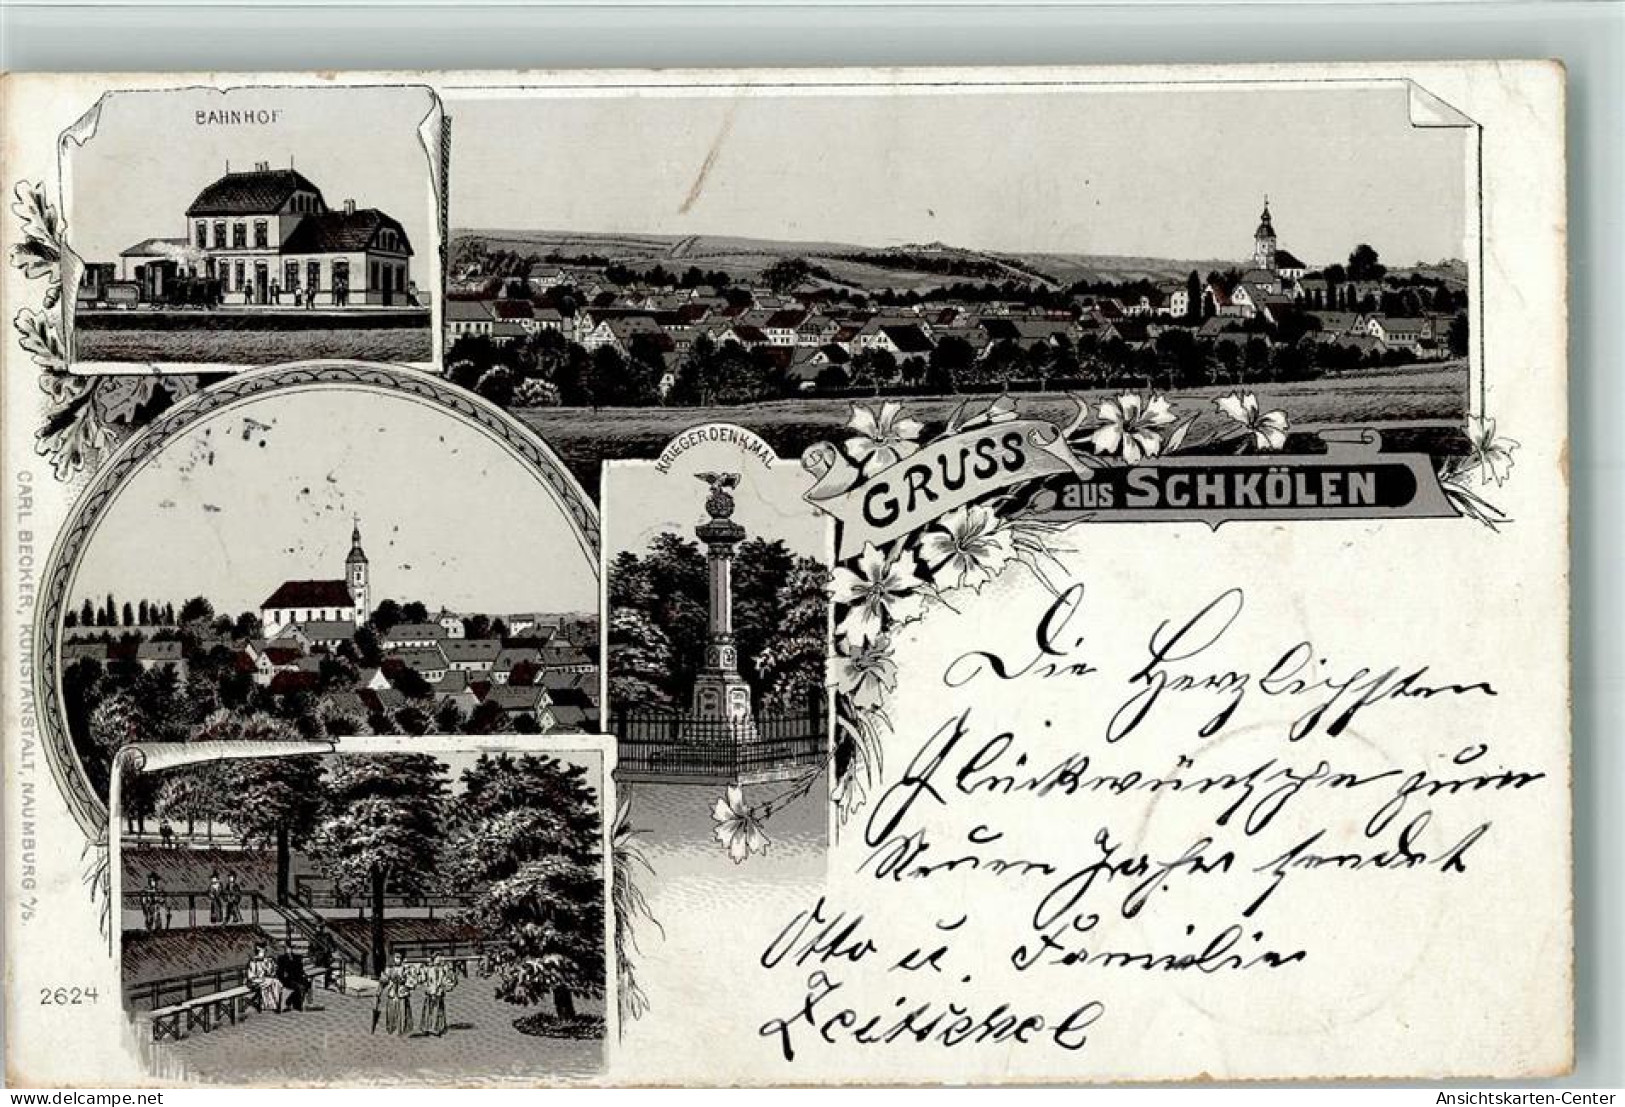 BAHNHOF
KRIEGERDENKMAL
GRUSS
aus SCHKÖLEN
Die Herzlichsten
Glückwünsche zum
Neuen Jahr sendet
Otto u. Familie
Zeitschel
CARL BECKER, KUNSTANSTALT, NAUMBURG a/S.
2624
delcampe.net
bvs-kw
Ansichtskarten-Center